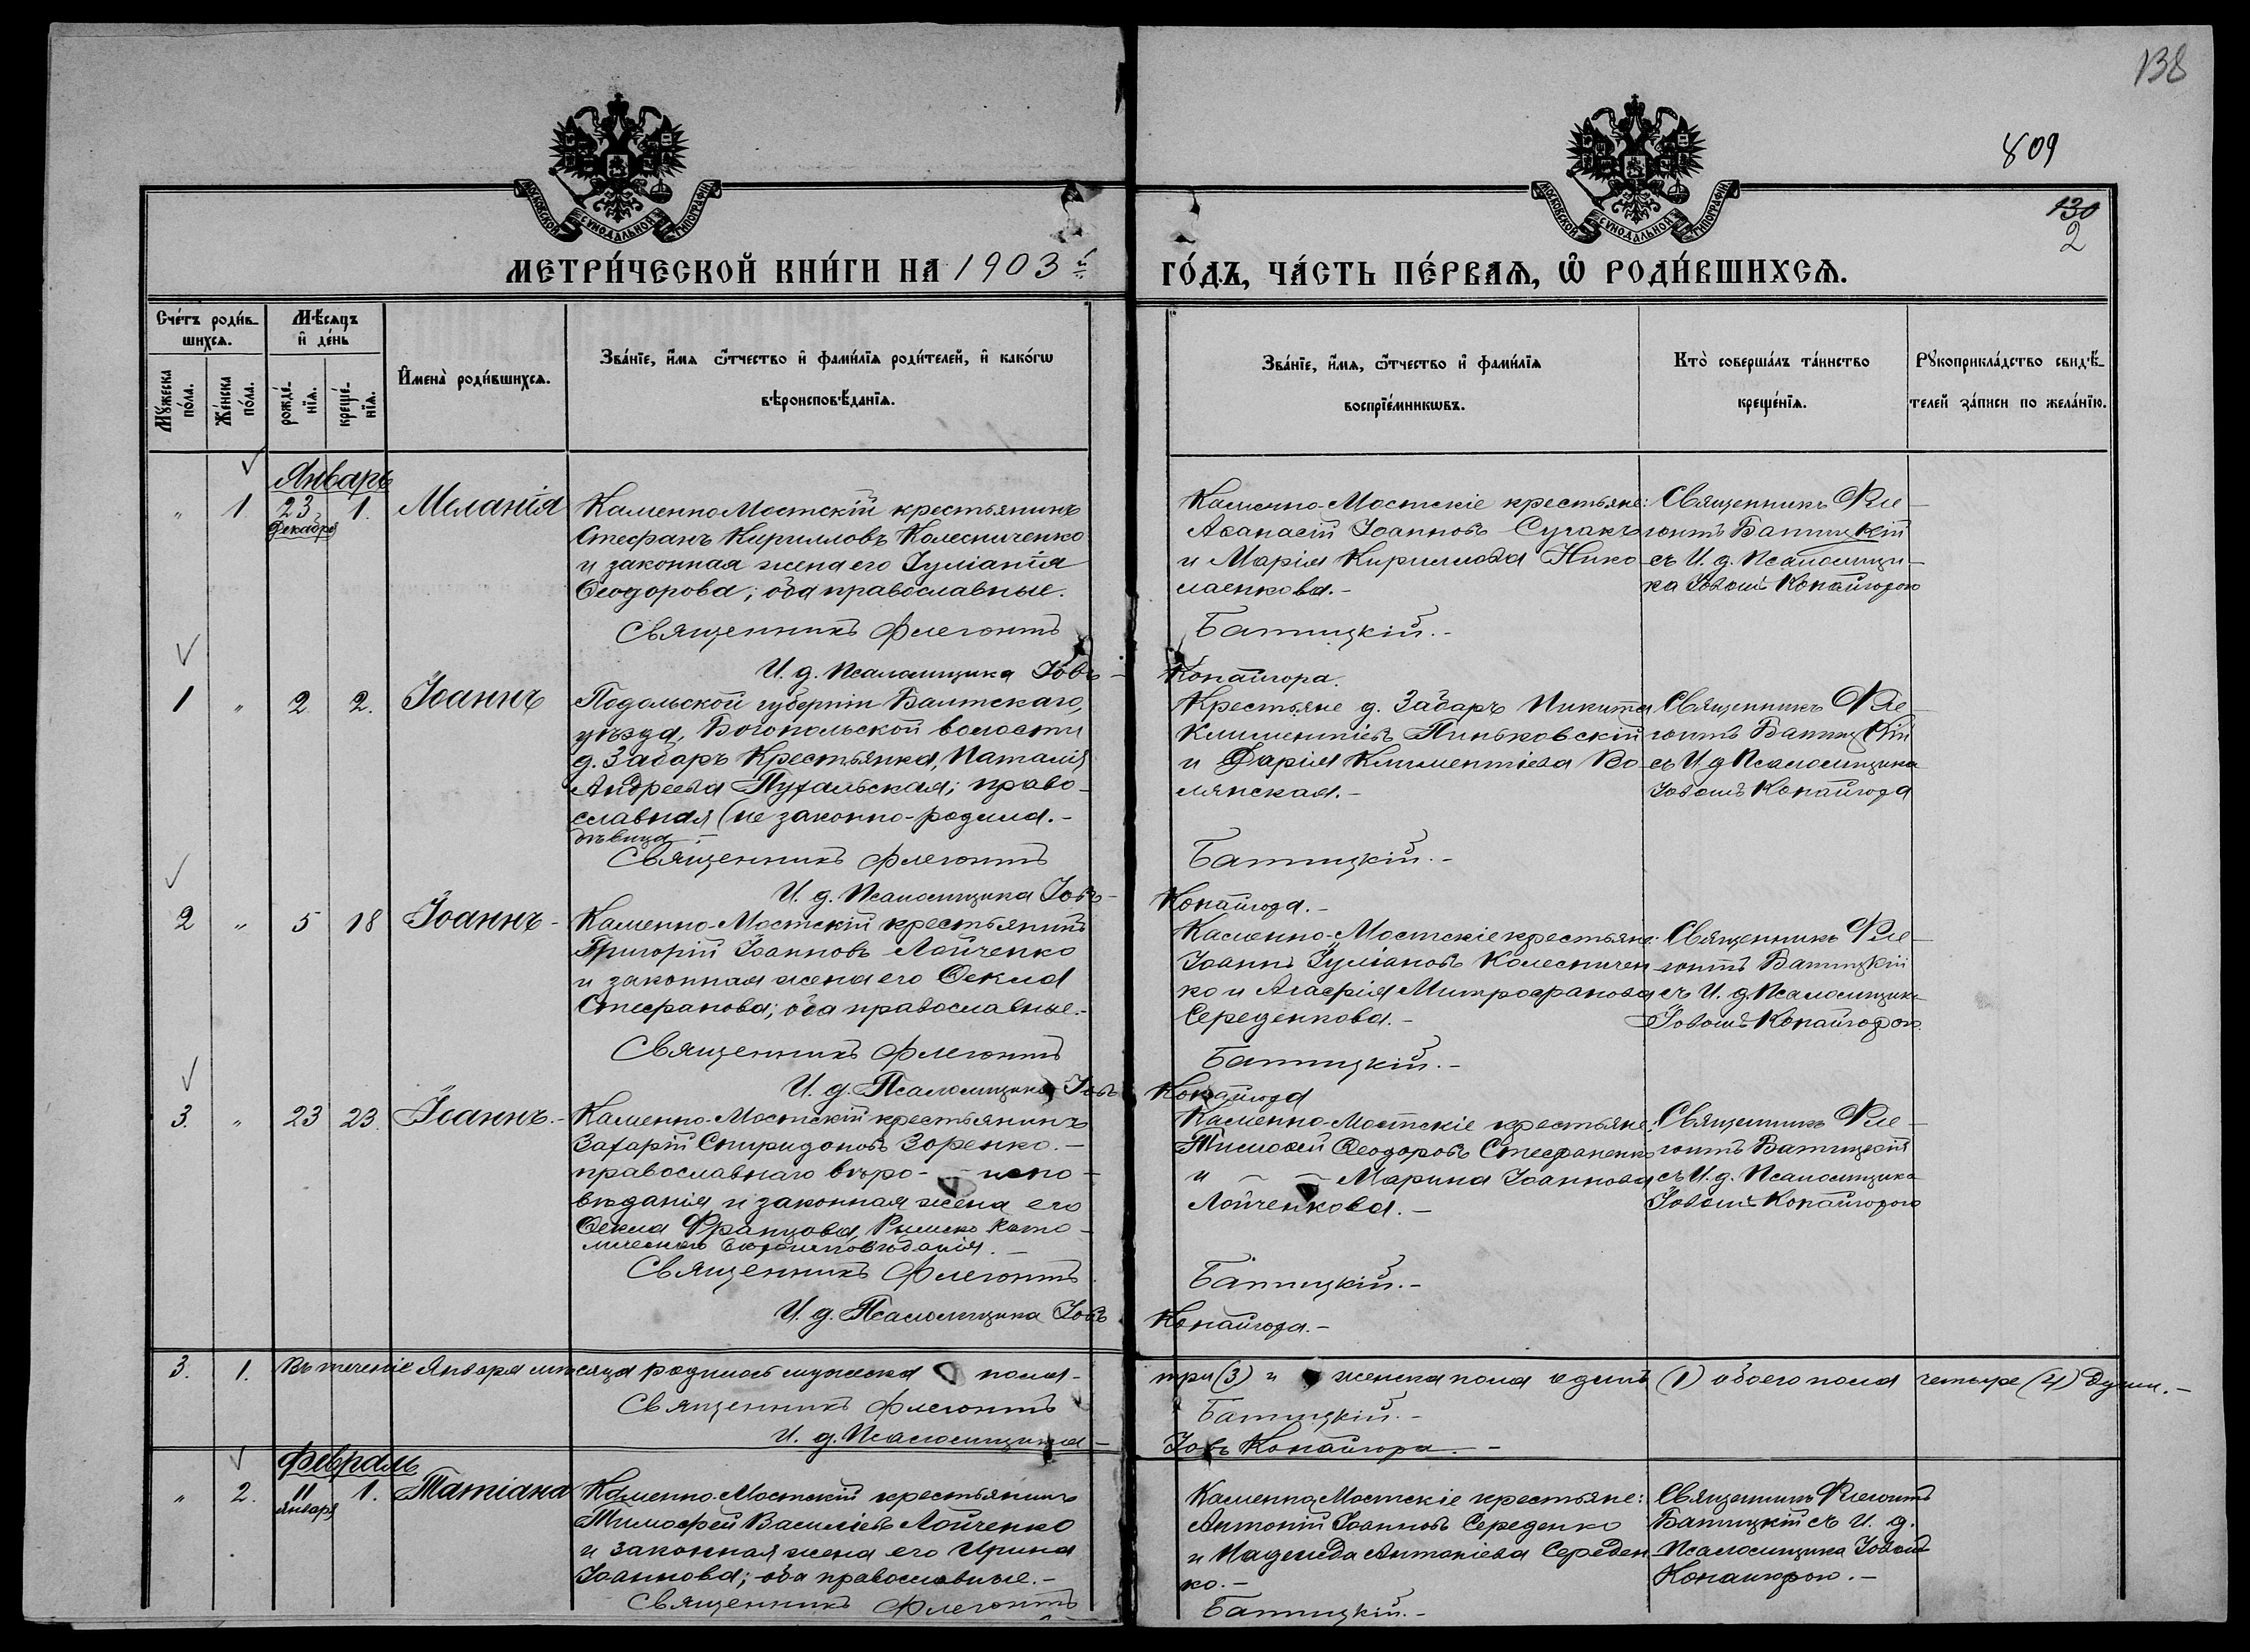 138
809
130
2
МОСКОВСКОЙ СѴНОДАЛЬНОЙ ТИПОГРАФІИ
МОСКОВСКОЙ СѴНОДАЛЬНОЙ ТИПОГРАФІИ
МЕТРИ́ЧЕСКОЙ КНИ́ГИ НА 1903й
ГО́ДЪ, ЧА́СТЬ ПЕ́РВАѦ, Ѽ РОДИ́ВШИХСѦ.
Сче́тъ роди́в-
шихсѧ.
Мѣ́сѧцъ
и҆ де́нь
Мꙋ́жеска
по́ла.
Же́нска
по́ла.
рожде́-
нїѧ.
креще́-
нїѧ.
И҆мена̀ роди́вшихсѧ.
Зва́нїе, и҆́мѧ ѻ҆́тчество и҆ фами́лїѧ роди́телей, и҆ како́гѡ
вѣроисповѣ́данїѧ.
Зва́нїе, и҆́мѧ, ѻ҆́тчество и҆ фами́лїѧ
воспрїе́мникѡвъ.
Кто̀ соверша́лъ та́инство
креще́нїѧ.
Рꙋкоприкла́дство свидѣ́-
телей за́писи по жела́нїю.
Январь
" 1 23 Декабря 1. Меланія
Каменно-Мостскій крестьянинъ
Стефанъ Кирилловъ Колесниченко
и законная жена его Іуліанія
Ѳеодорова; оба православные.
Каменно-Мостскіе крестьяне:
Аѳанасій Іоанновъ Сугакъ
и Марія Кириллова Нико-
лаенкова.-
Священникъ Фле-
гонтъ Батицкій
съ И. д. Псаломщи-
ка Іовомъ Копайгорою
Священникъ Флегонтъ Батицкій.-
И. д. Псаломщика Іовъ - Копайгора.
1 " 2 2. Іоаннъ
Подольской губерніи Балтскаго,
уѣзда, Богопольской волости
д. Забаръ Крестьянка, Наталія
Андреева Пухальская; право-
славная (не законно-родила.-
дѣвица -
Крестьяне д. Забаръ Никита
Климентіевъ Пиньковскій
и Дарія Климентіева Во-
лянская.-
Священникъ Фле-
гонтъ Батицкій
съ И д Псаломщика
Іовомъ Копайгора
Священникъ Флегонтъ Батицкій.-
И. д. Псаломщика Іовъ - Копайгора.-
2 " 5 18 Іоаннъ-
Каменно-Мостскій крестьянинъ
Григорій Іоанновъ Лойченко
и законная жена его Ѳекла
Стефанова; оба православные.-
Каменно-Мостскіе крестьяне:
Іоаннъ Іуліановъ Колесничен
ко и Агафія Митрофанова
Середенкова.-
Священникъ Фле-
гонтъ Батицкій
съ И. д. Псаломщика
Іовомъ Копайгорою.
Священникъ Флегонтъ Батицкій.-
И. д. Псаломщика Іовъ Копайгора
3. " 23 23. Іоаннъ.-
Каменно-Мостскій крестьянинъ
Захарій Спиридоновъ Зоренко.-
православнаго вѣро- - испо-
вѣданія и законная жена его
Ѳекла Францова, Римско като-
лическаго вѣроисповѣданія.-
Каменно-Мостскіе крестьяне:
Тимоѳей Ѳеодоровъ Стефаненко
и - - Марина Іоаннова
Лойченкова.-
Священникъ Фле-
гонтъ Батицкій
съ И. д. Псаломщика
Іовомъ Копайгорою
Священникъ Флегонтъ Батицкій.-
И. д. Псаломщика Іовъ Копайгора.-
3. 1. Въ теченіе Января мѣсяца родилось мужеска пола- три (3) и женска пола одинъ (1) обоего пола четыре (4) души.-
Священникъ Флегонтъ Батицкій.-
И. д. Псаломщика - Іовъ Копайгора.-
Февраль
" 2. 11 января 1. Татіана
Каменно-Мостскій крестьянинъ
Тимофей Василіевъ Лойченко
и законная жена его Ирина
Іоаннова; оба православные.-
Каменно-Мостскіе крестьяне:
Антоній Іоанновъ Середенко
и Надежда Антоніева Середен
ко.-
Священникъ Флегонтъ
Батицкій съ И. д.
Псаломщика Іовомъ
Копайгорою.-
Священникъ Флегонтъ Батицкій.-